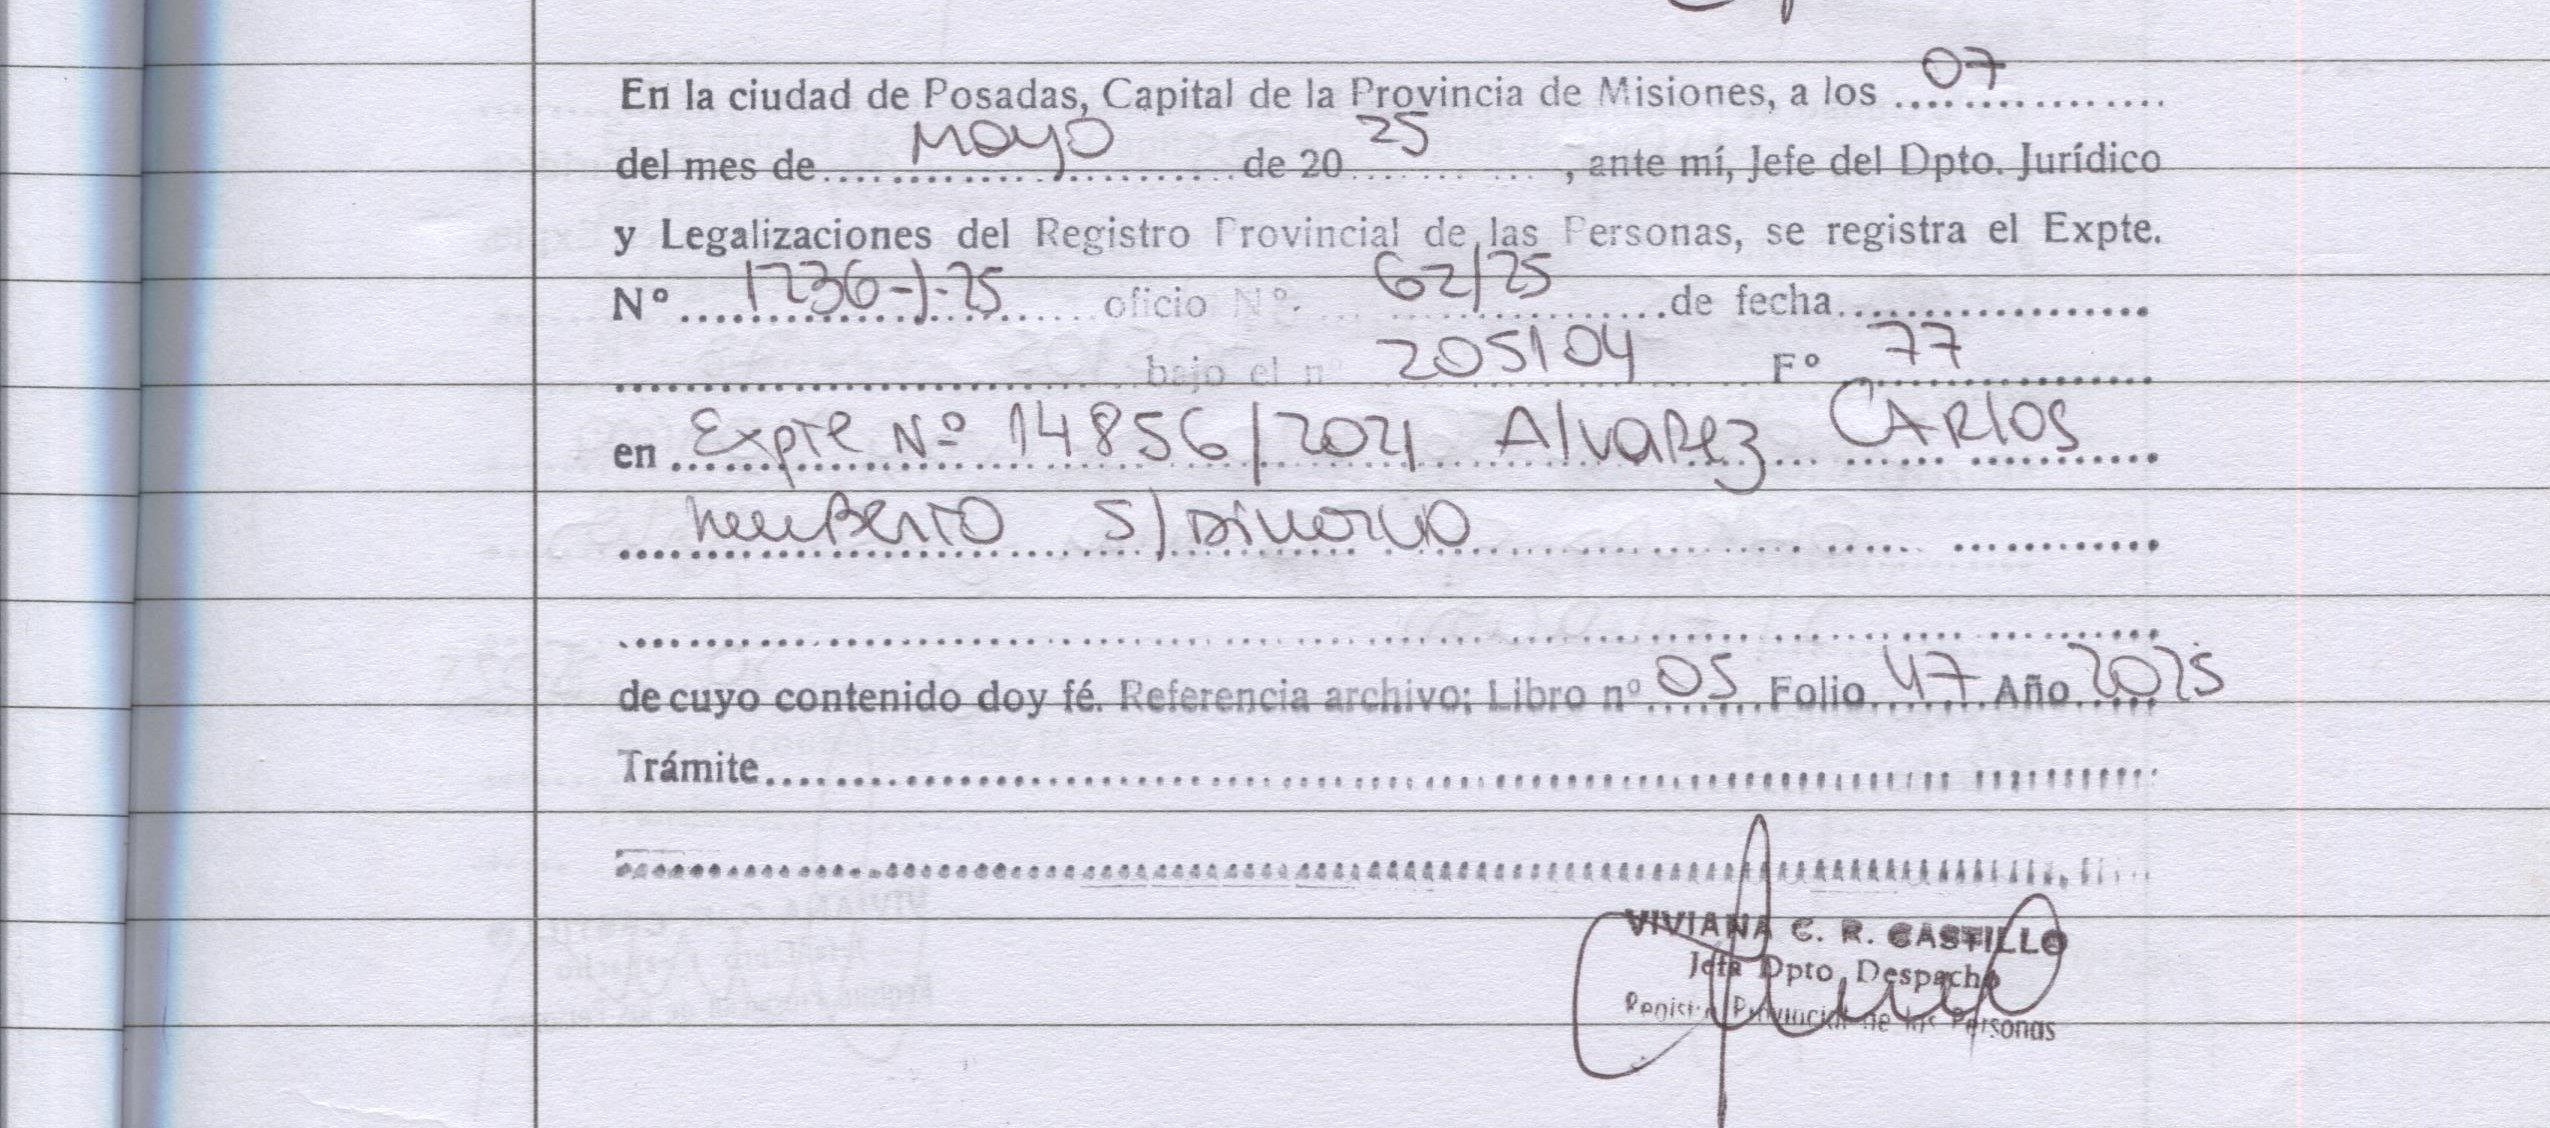 En la ciudad de Posadas, Capital de la Provincia de Misiones, a los 07
del mes de Mayo de 20 25, ante mí, Jefe del Dpto. Jurídico
y Legalizaciones del Registro Provincial de las Personas, se registra el Expte.
Nº 1236-J-25 oficio Nº 62/25 de fecha
bajo el nº 205104 Fº 77
en Expte Nº 14856/2021 Alvarez CARlOS
humBerto S/ Divorcio
de cuyo contenido doy fé. Referencia archivo: Libro nº 05 Folio 47 Año 2025
Trámite
VIVIANA C. R. CASTILLO
Jefa Dpto Despacho
Registro Provincial de las Personas